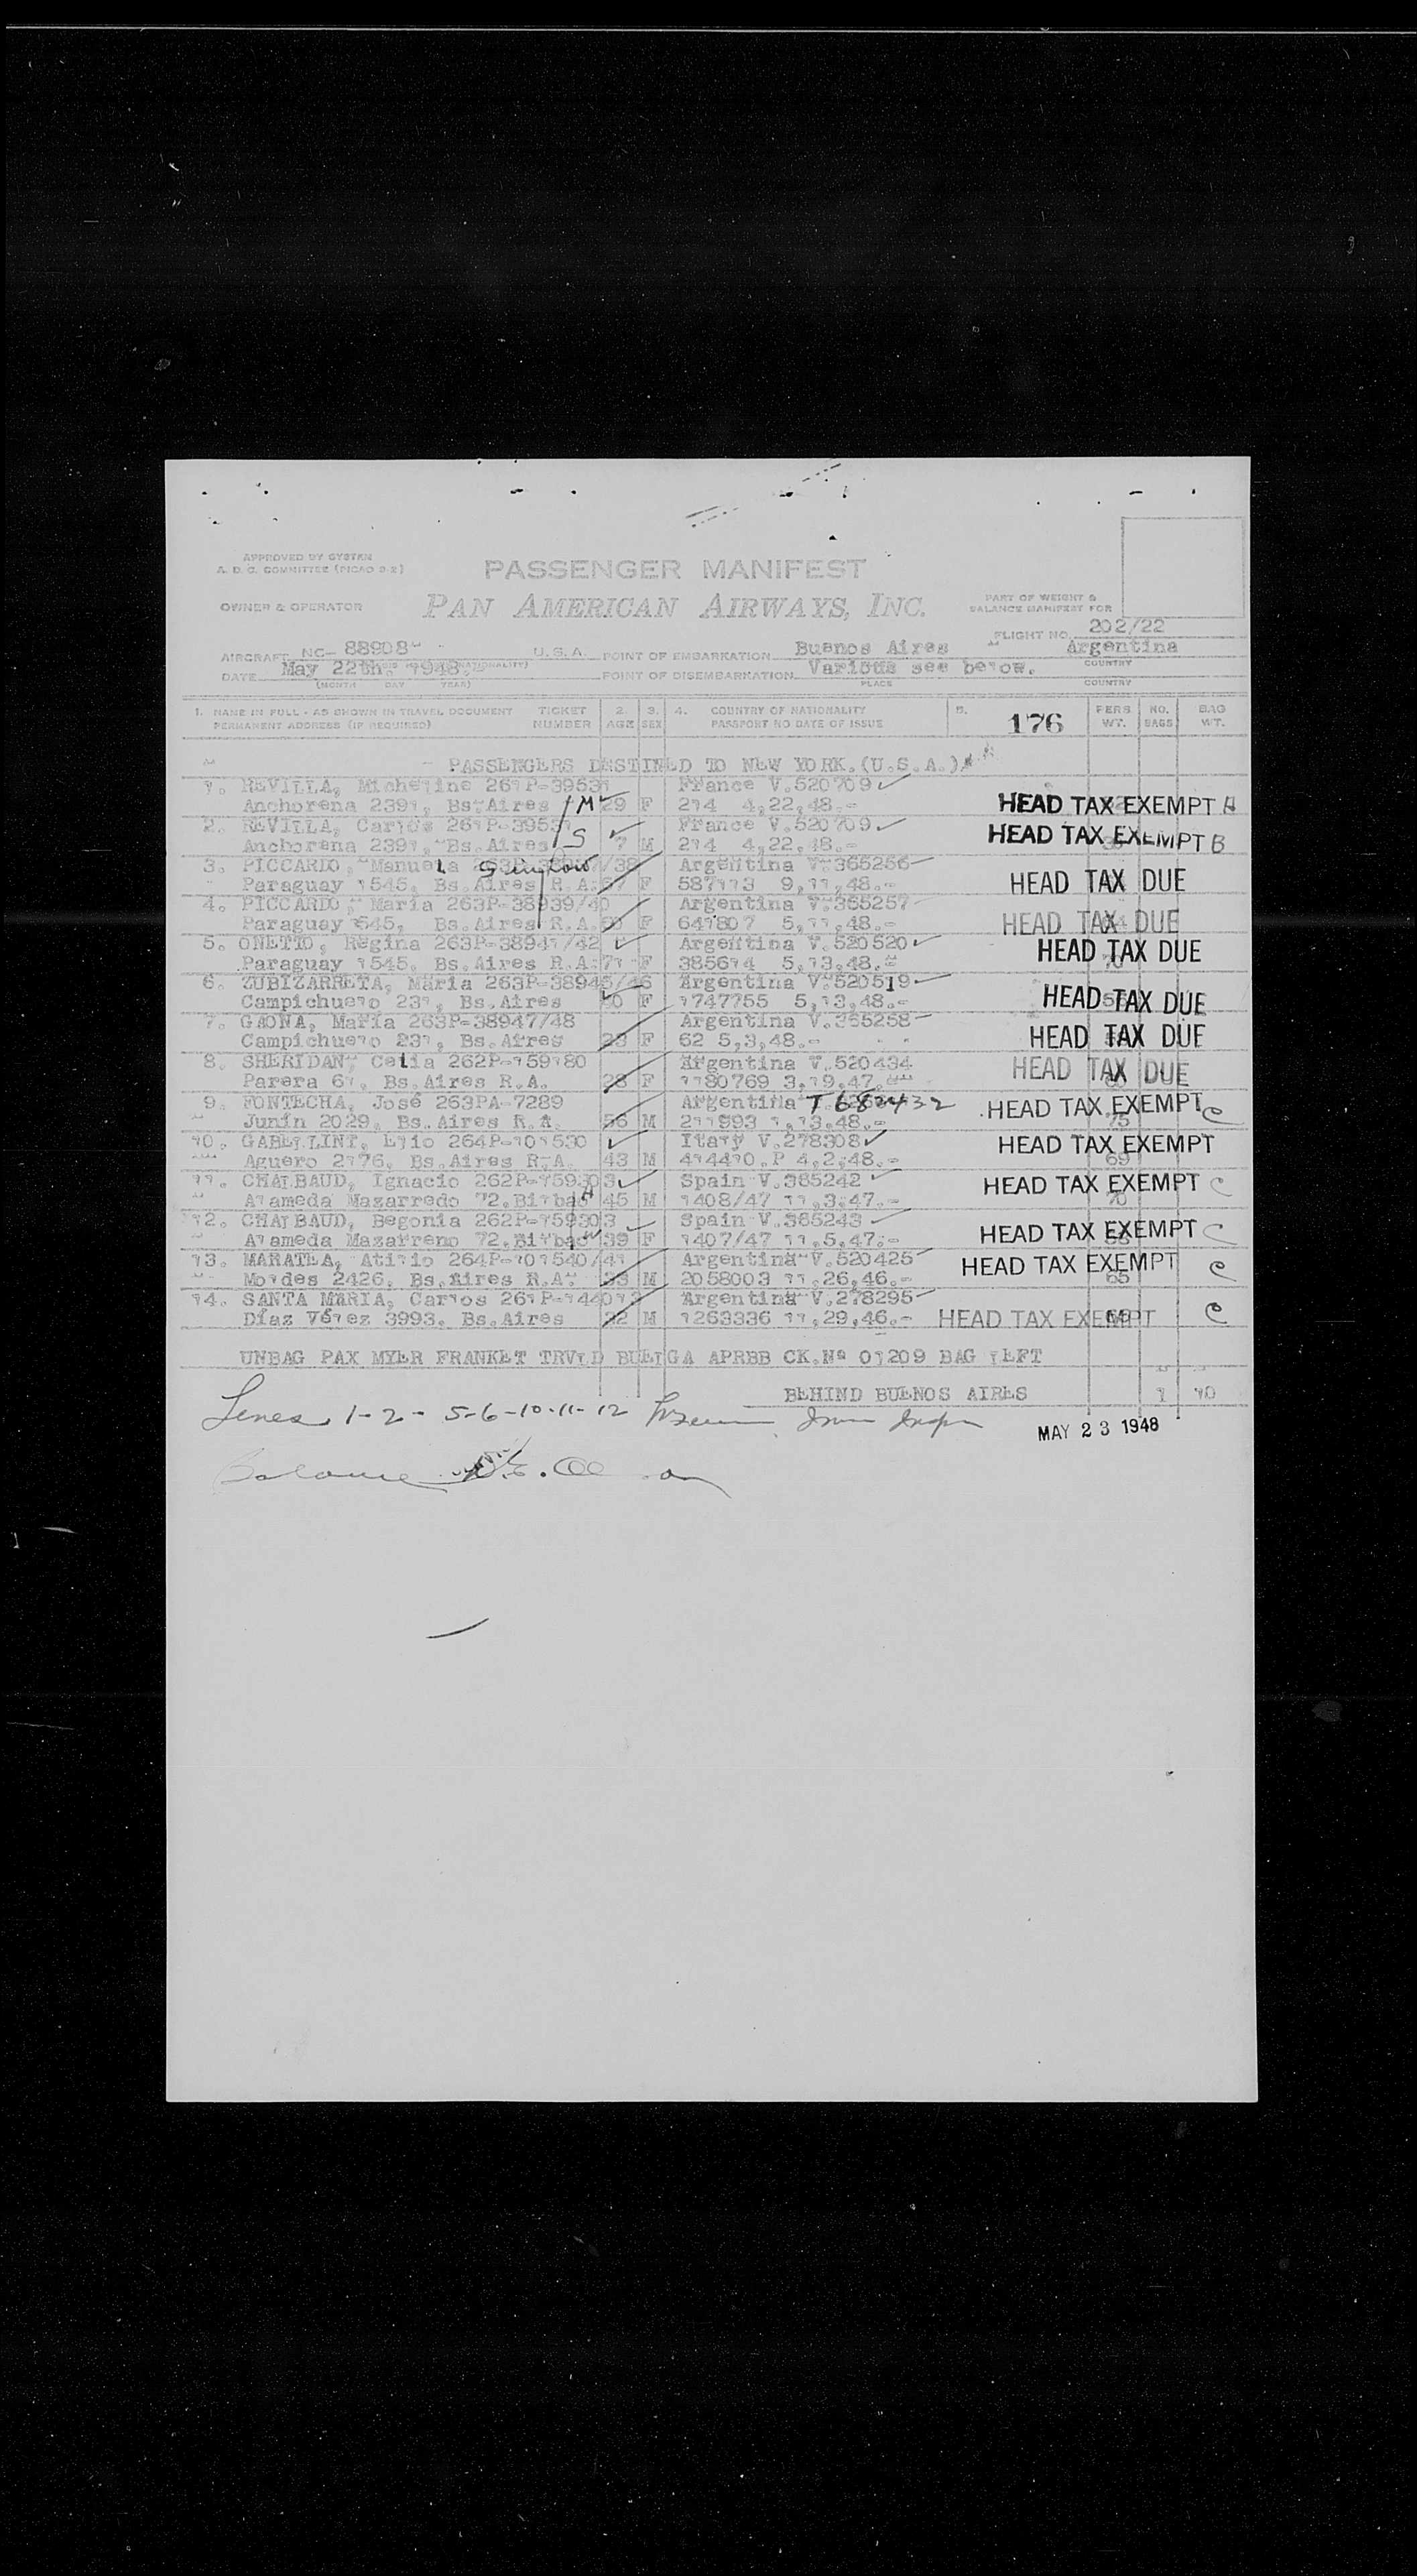 APPROVED BY SYSTEM
A. D. C. COMMITTEE (PICAO D-2)
PASSENGER MANIFEST
OWNER & OPERATOR PAN AMERICAN AIRWAYS, INC.
PART OF WEIGHT &
BALANCE MANIFEST FOR
FLIGHT NO. 202/22
AIRCRAFT NC- 88908 U.S.A. POINT OF EMBARKATION Buenos Aires Argentina
DATE May 22th. 1948. POINT OF DISEMBARKATION Various see below. COUNTRY
(MONTH DAY YEAR) PLACE COUNTRY
1. NAME IN FULL - AS SHOWN IN TRAVEL DOCUMENT TICKET 2. 3. 4. COUNTRY OF NATIONALITY 5. 176 PERS NO. BAG
PERMANENT ADDRESS (IF REQUIRED) NUMBER AGE SEX PASSPORT NO DATE OF ISSUE WT. BAGS WT.
PASSENGERS DESTINED TO NEW YORK.(U.S.A.)
1. REVILLA, Micheline 261P-39531 France V.520709
Anchorena 2391, Bs.Aires M 29 F 214 4,22,48.- HEAD TAX EXEMPT
2. REVILLA, Carlos 261P-39531 France V.520709
Anchorena 2391, Bs.Aires S 7 M 214 4,22,48.- HEAD TAX EXEMPT B
3. PICCARDO, Manuela /38 Argentina V.365256
Paraguay 1545, Bs.Aires R.A. 67 F 587113 9,11,48.- HEAD TAX DUE
4. PICCARDO, María 263P-38939/40 Argentina V.365257
Paraguay 1545, Bs.Aires R.A. F 641807 5,11,48.- HEAD TAX DUE
5. ONETTO, Regina 263P-38941/42 Argentina V.520520
Paraguay 1545, Bs.Aires R.A. 71 F 385614 5,13,48.- HEAD TAX DUE
6. ZUBIZARRETA, María 263P-38945/46 Argentina V.520519
Campichuelo 231, Bs.Aires F 1747755 5,13,48.- HEAD TAX DUE
7. GAONA, María 263P-38947/48 Argentina V.365258
Campichuelo 231, Bs.Aires 23 F 62 5,3,48.- HEAD TAX DUE
8. SHERIDAN, Celia 262P-159180 Argentina V.520434
Parera 61, Bs.Aires R.A. 28 F 1180769 3,19,47.- HEAD TAX DUE
9. FONTECHA, José 263PA-7289 Argentina T 682432
Junín 2029, Bs.Aires R.A. 56 M 211993 1,13,48.- HEAD TAX EXEMPT C
10. GABELLINI, Elio 264P-101530 Italy V.278308
Aguero 2176, Bs.Aires R.A. 43 M 414410.P 4,2,48.- HEAD TAX EXEMPT
11. CHALBAUD, Ignacio 262P-159303 Spain V.365242
Alameda Mazarredo 72.Bilbao 45 M 1408/47 11,3,47.- HEAD TAX EXEMPT C
12. CHALBAUD, Begonia 262P-159303 Spain V.365243
Alameda Mazarreno 72.Bilbao 39 F 1407/47 11,5,47.- HEAD TAX EXEMPT C
13. MARATEA, Atilio 264P-101540/41 Argentina V.520425
Moldes 2426, Bs.Aires R.A. 33 M 2058003 11,26,46.- HEAD TAX EXEMPT C
14. SANTA MARIA, Carlos 261P-144013 Argentina V.278295
Díaz Vélez 3993, Bs.Aires M 1263336 11,29,46.- HEAD TAX EXEMPT C
UNBAG PAX MYER FRANKEL TRVLD BUEIGA APRBB CK.Nª 01209 BAG LEFT
BEHIND BUENOS AIRES 1 10
Lines 1-2-5-6-10-11-12
MAY 23 1948
Balance